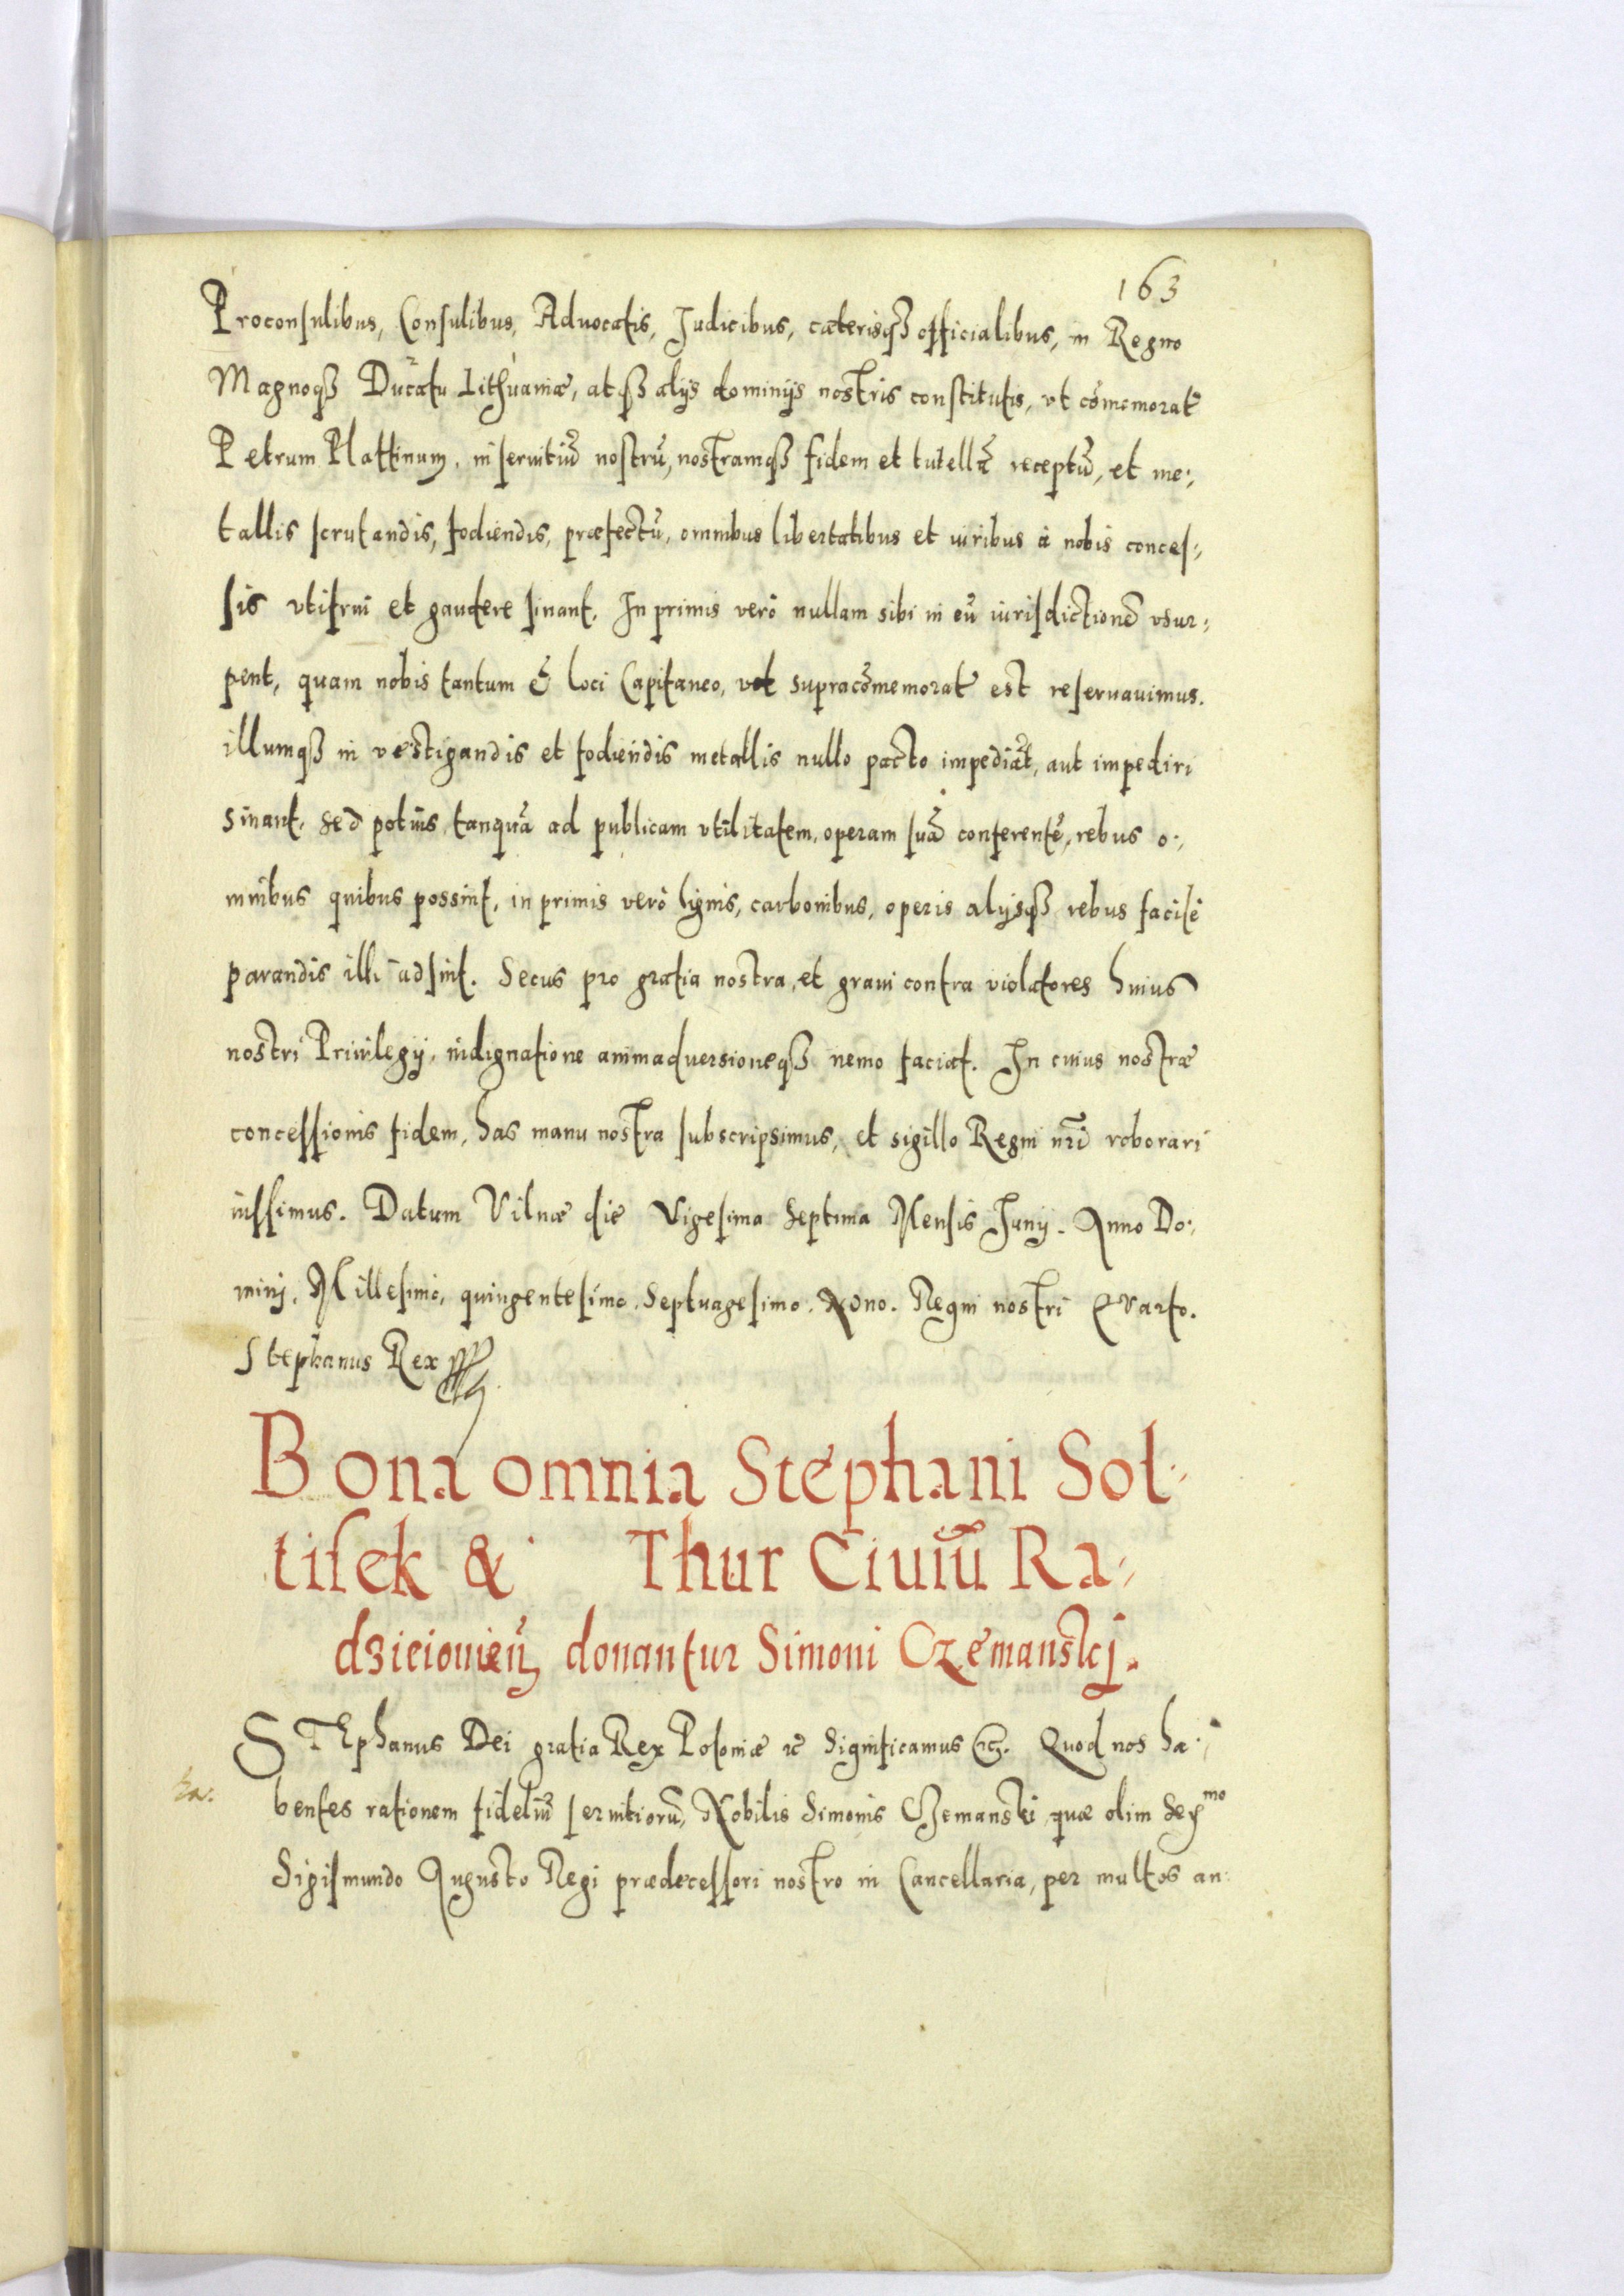 163
Proconsulibus, Consulibus, Aduocatis, Judicibus, cæterisqȝ officialibus, in Regno
Magnoqȝ Ducatu Lithuaniæ, atqȝ alijs dominijs nostris constitutis, vt cōmemorat
Petrum Plattinum, in seruitiū nostrū, nostramqȝ fidem et tutellā receptū, et me:
tallis scrutandis, fodiendis, præfectū, omnibus libertatibus et iuribus à nobis conces:
sis vtifrui et gaudere sinant. In primis verò nullam sibi in eū iurisdictionē vsur:
pent, quam nobis tantum & loci Capitaneo, vt supracōmemorat est reseruauimus.
illumqȝ in vestigandis et fodiendis metallis nullo pacto impediāt, aut impediri
sinant. Sed potius tanquā ad publicam vtilitatem, operam suā conferentē, rebus o:
mnibus quibus possint, in primis verò lignis, carbonibus, operis alijsqȝ rebus facilè
parandis illi adsint. Secus pro gratia nostra, et graui contra violatores huius
nostri Priuilegij, indignatione animaduersioneqȝ nemo faciat. In cuius nostræ
concessionis fidem, has manu nostra subscripsimus, et sigillo Regni nr̄i roborari
iussimus. Datum Vilnæ die Vigesima Septima Mensis Junij. Anno Do:
minj. Millesimo, quingentesimo. Septuagesimo. Nono. Regni nostri Qvarto.
Stephanus Rex
Bona omnia Stephani Sol:
tisek & Thur Ciuiū Ra:
dzieiouień donantur Simoni Czemanskj.
STEphanus Dei gratia Rex Poloniæ &c Significamus &c. Quod nos ha:
ha.
bentes rationem fideliū seruitiorū, Nobilis Simonis Czemanski, quæ olim Serᵐᵒ
Sigismundo Augusto Regi prædecessori nostro in Cancellaria, per multos an: